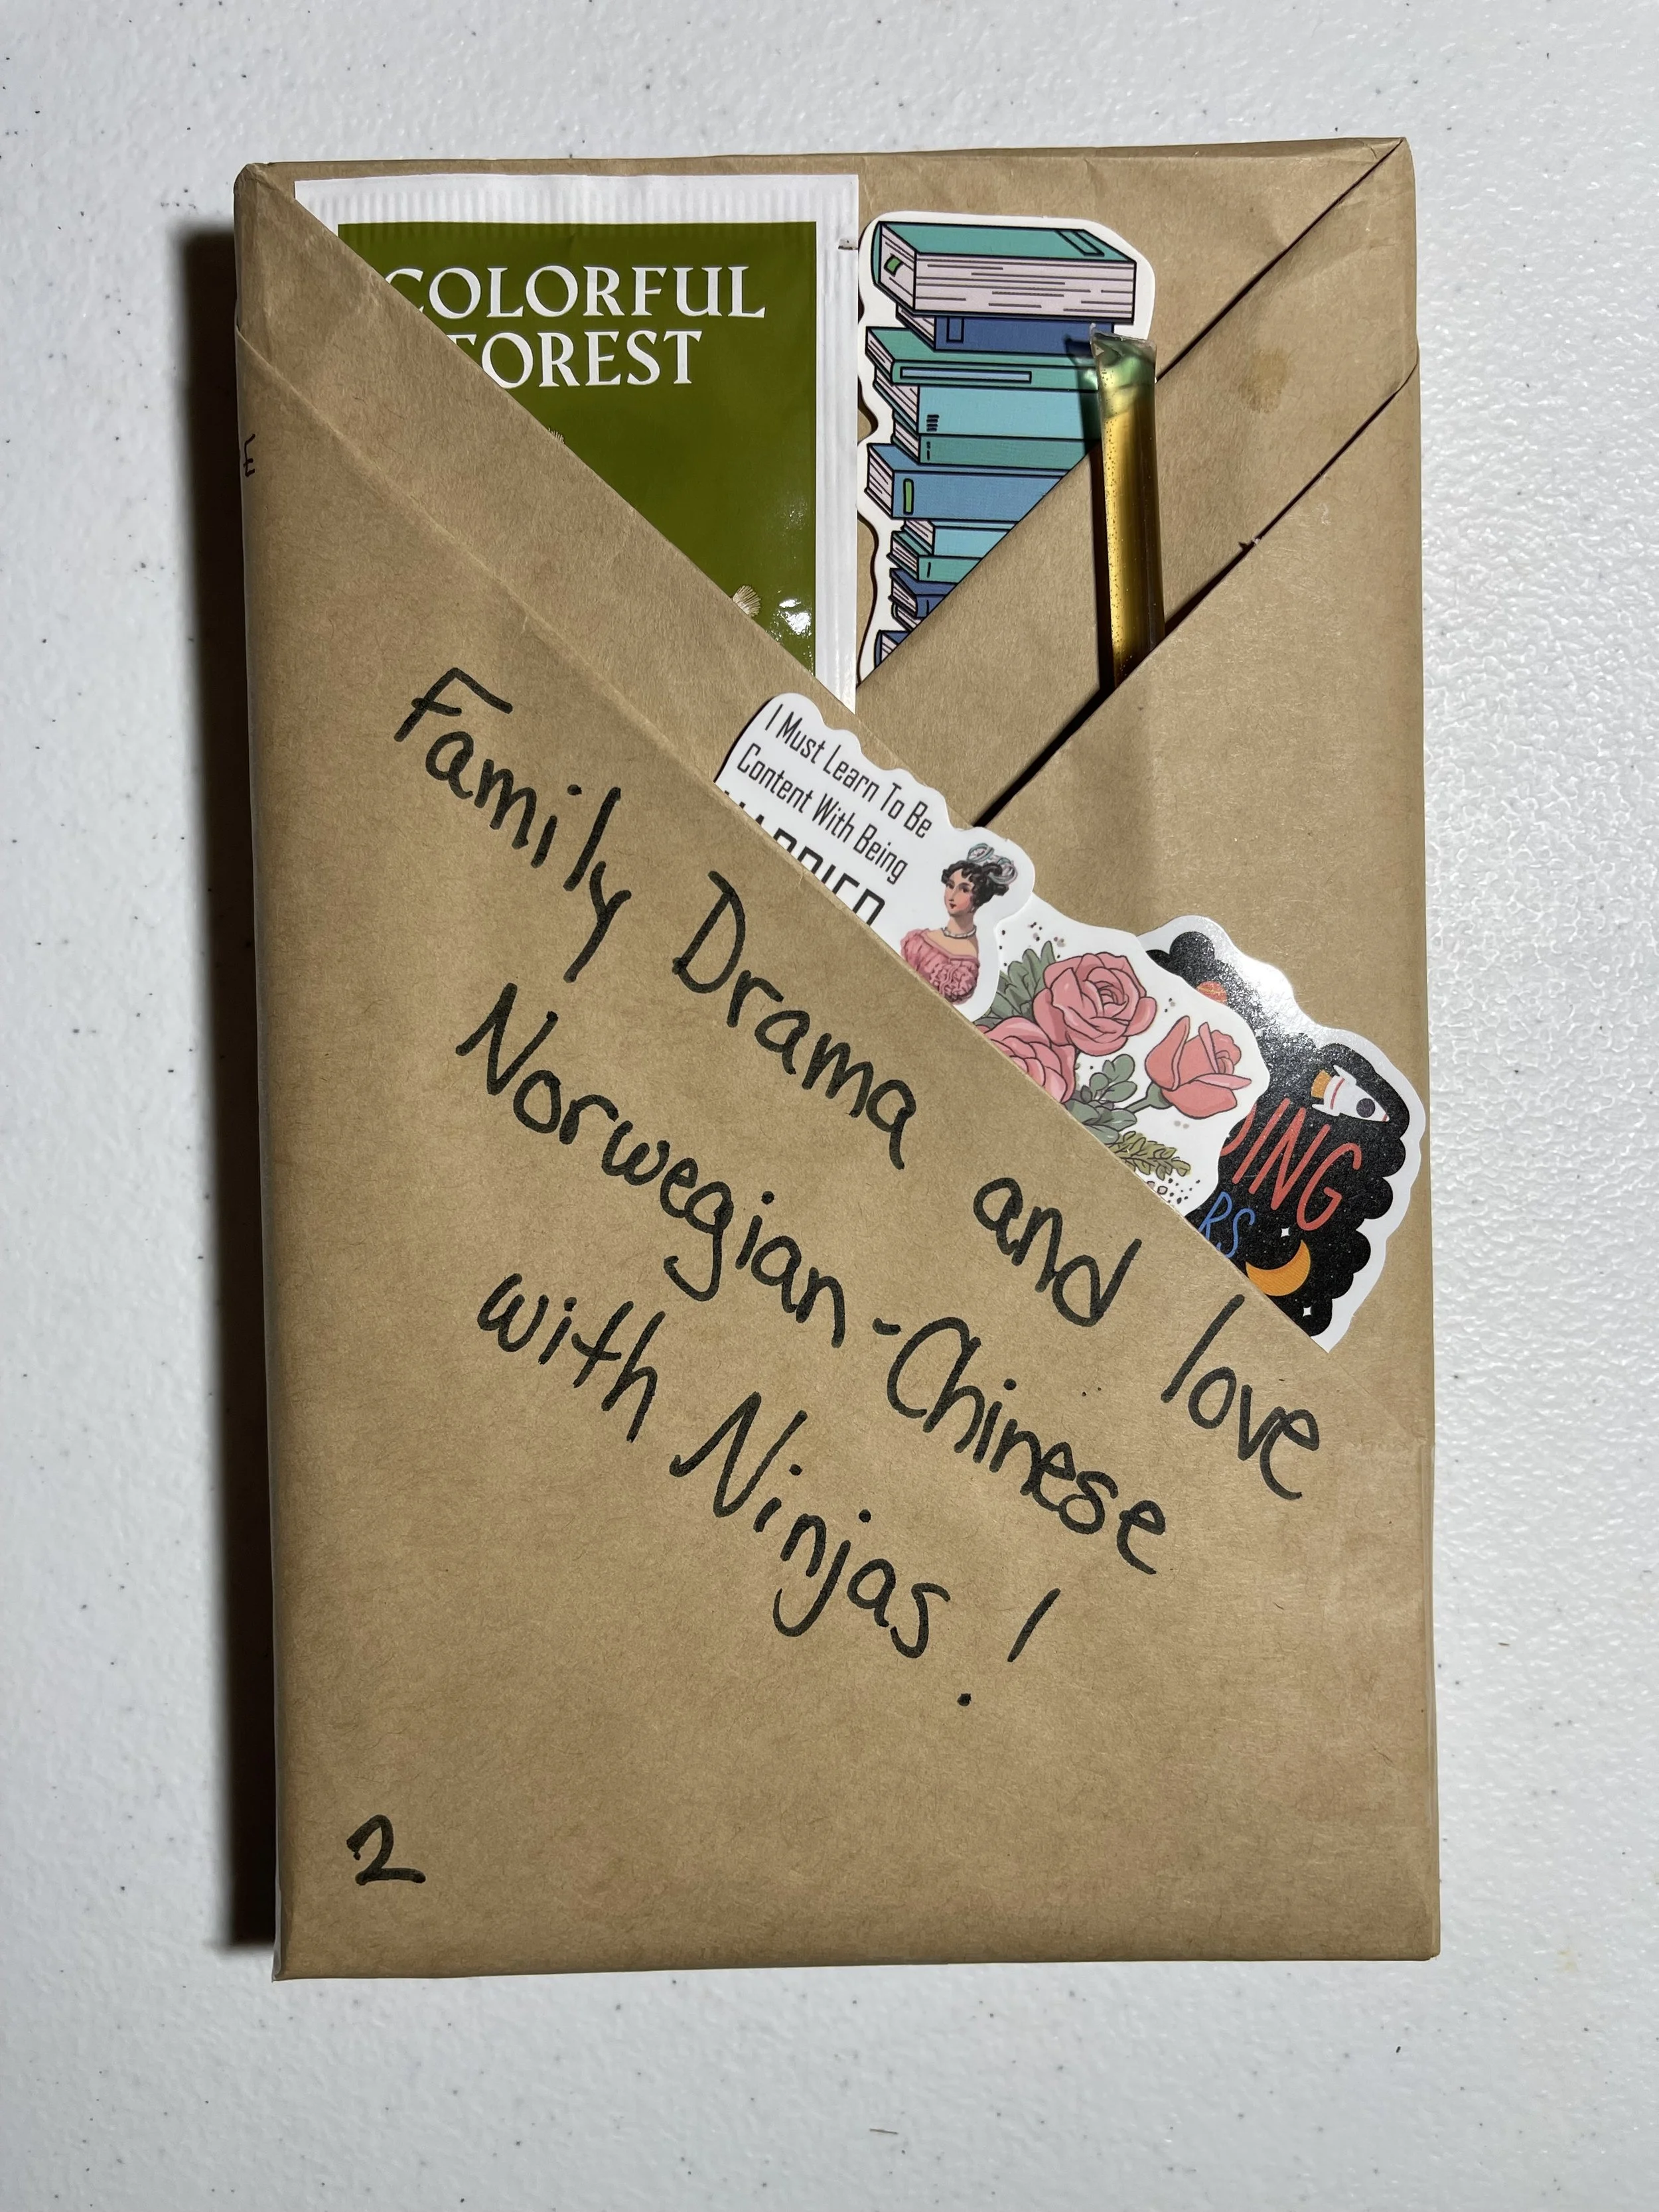 COLORFUL
FOREST
I Must Learn To Be
Content With Being
Family Drama and love
Norwegian-Chinese
with Ninjas!
2